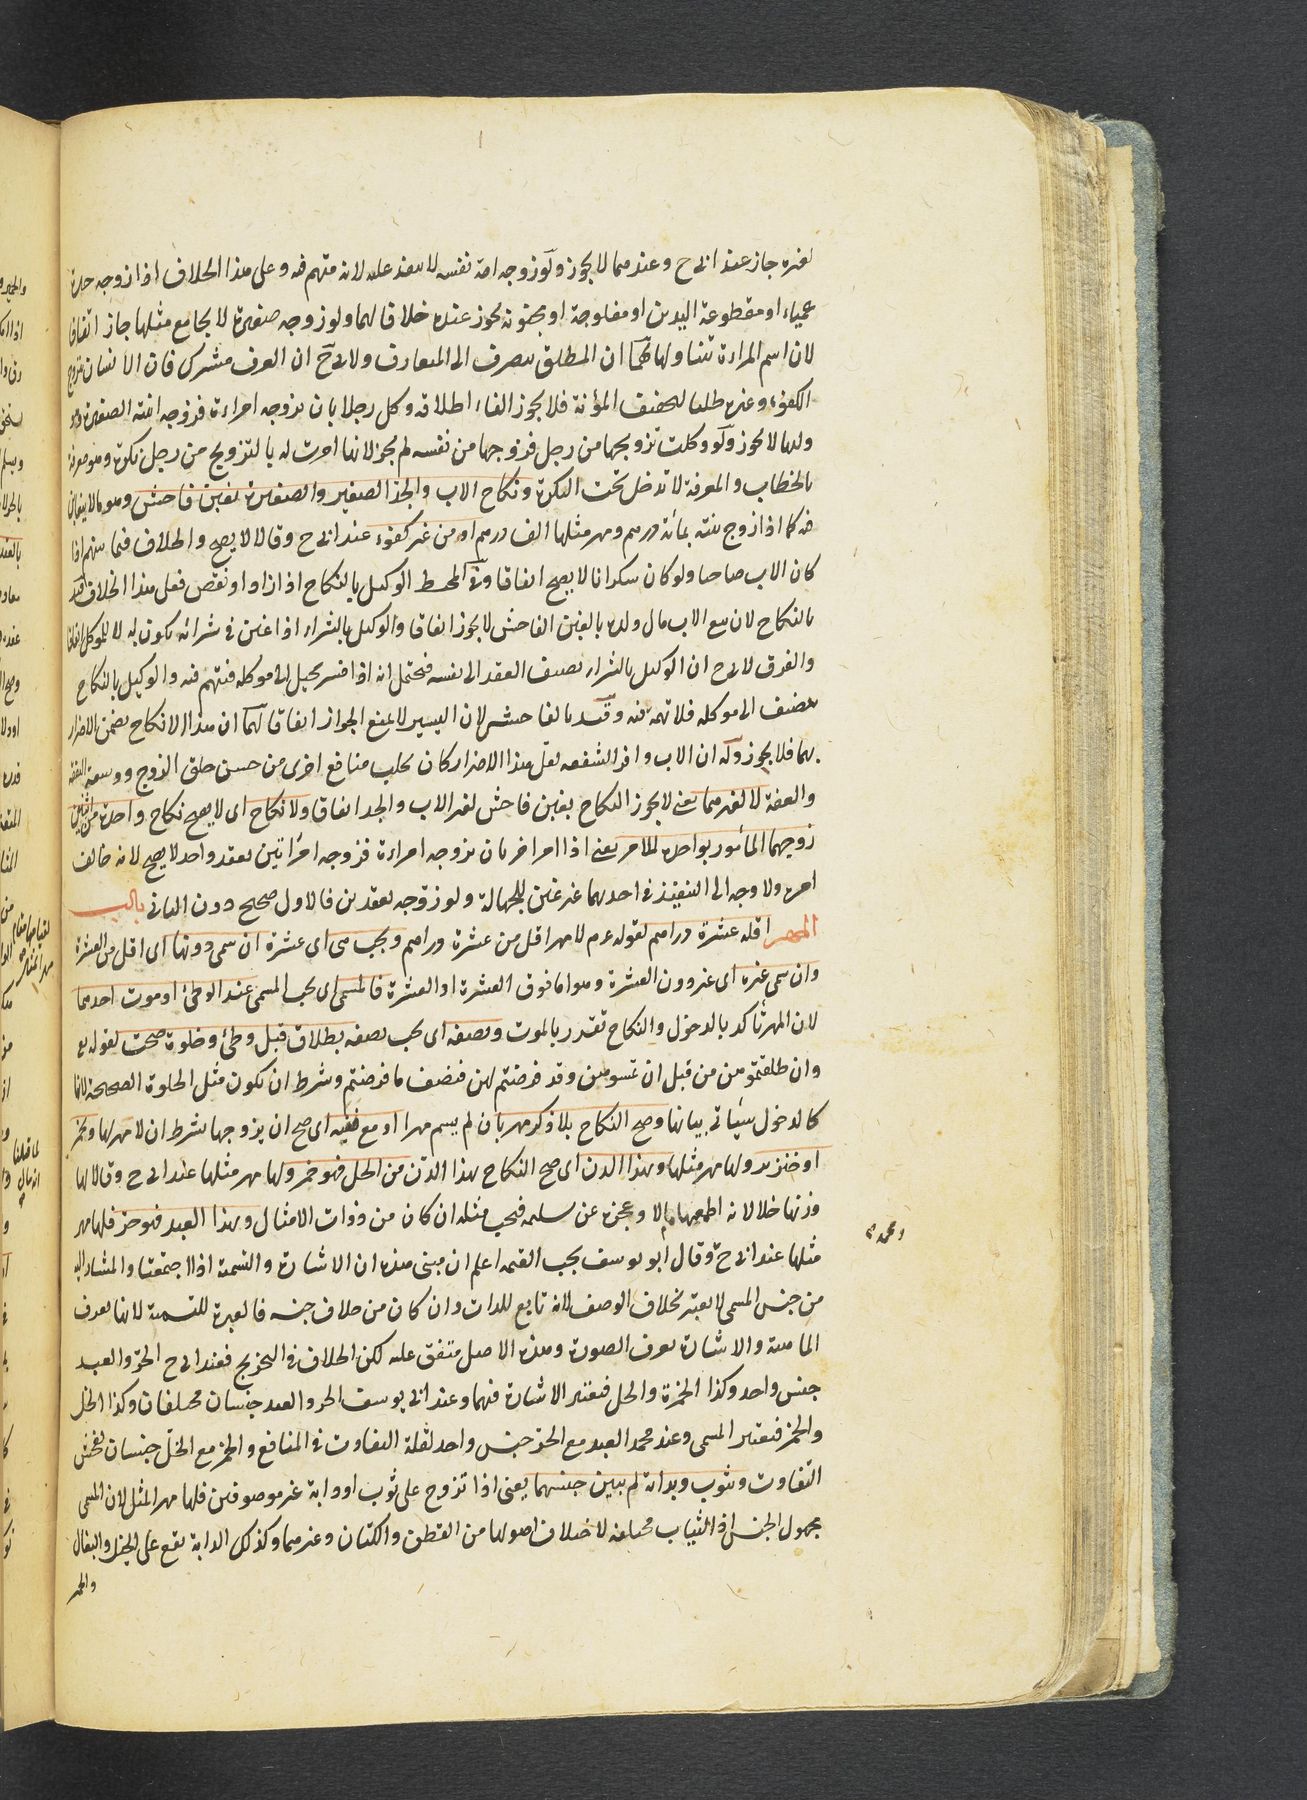 لغيره جاز عند ابى ح وعندهما لا يجوز ولو زوجه امة نفسه لا ينفذ عليه لانه متهم فيه وعلى هذا الخلاف اذا زوجه حرة
عمياء او مقطوعة اليدين او مفلوجة او مجنونة يجوز عنده خلافا لهما ولو زوجه صغيرة لا يجامع مثلها جاز اتفاقا
لان اسم المراءة تتناولها لهما ان المطلق ينصرف الى المتعارف ولابى ح ان العرف مشترك فان الانسان يتزوج
الكفوء وغيره طلبا لتخفيف المؤنة فلا يجوز الغاء اطلاقه وكل رجلا بان يزوجه امراءة فزوجه ابنته الصغيرة
وليها لا يجوز ولو وكلت تزويجها من رجل فزوجها من نفسه لم يجز لانها امرت له بالتزويج من رجل نكرة وهو معرفة
بالخطاب والمعرفة لا تدخل تحت النكرة ونكاح الاب والجد الصغير والصغيرة بغبن فاحش وهو ما لا يتغابن
فيه كما اذا زوج بنته بمائة درهم ومهر مثلها الف درهم او من غير كفوء عند ابى ح وقالا لا يصح والخلاف فيما بينهم اذا
كان الاب صاحيا ولو كان سكرانا لا يصح اتفاقا وفى المحيط الوكيل بالنكاح اذا زاد او نقص فعلى هذا الخلاف قيد
بالنكاح لان بيع الاب مال ولده بالغبن الفاحش لا يجوز اتفاقا والوكيل بالشراء اذا غبن فى شرائه يكون له لا للموكل اتفاقا
والفرق لابى ح ان الوكيل بالشراء يضيف العقد الى نفسه فيحتمل انه اذا خسر يحيل الى موكله فيتهم فيه والوكيل بالنكاح
يضيف الى موكله فلا تهمة فيه وقيد بالفاحش لان اليسير لا يمنع الجواز اتفاقا لهما ان هذا الانكاح يتضمن الاضرار
بهما فلا يجوز وله ان الاب وافر الشفقة لعل هذا الاضرار كان لجلب منافع اخرى من حسن خلق الزوج ووسعة النفقة
والعفة لا لغيرهما يعنى لا يجوز النكاح بغبن فاحش لغير الاب والجد اتفاقا ولا نكاح اى لا يصح نكاح واحدة من اثنتين
زوجهما المأمور بواحدة للآمر يعنى اذا امر اخر بان يزوجه امراءة فزوجه امرأتين بعقد واحد لا يصح لانه خالف
امره ولا وجه الى التنفيذ فى احدهما غير عين للجهالة ولو زوجه بعقدين فالاول صحيح دون الثانى باب
المهر اقله عشرة دراهم لقوله ءم لا مهر اقل من عشرة دراهم ويجب هى اى عشرة ان سمى دونها اى اقل من العشرة
وان سمى غيره اى غير دون العشرة وهو ما فوق العشرة او العشرة فالمسمى اى يجب المسمى عند الوطئ او موت احدهما
لان المهر تأكد بالدخول والنكاح تقرر بالموت ونصفه اى يجب نصفه بطلاق قبل وطئ وخلوة صحت لقوله تع
وان طلقتموهن من قبل ان تمسوهن وقد فرضتم لهن فريضة فنصف ما فرضتم وشرط ان يكون قبل الخلوة الصحيحة لانها
كالدخول سيأتى بيانها وصح النكاح بلا ذكر مهر بان لم يسم مهرا او مع نفيه اى صح ان يزوجها بشرط ان لا مهر لها وبخمر
او خنزير ولها مهر مثلها وبهذا الدن اى صح النكاح بهذا الدن من الخل فهو خمر ولها مهر مثلها عند ابى ح وقالا لها
وزنها خلا لانه اطمعها مالا وعجز عن تسليمه فيجب مثله ان كان من ذوات الامثال وبهذا العبد فهو حر فلها مهر
مثلها عند ابى ح وقال ابو يوسف يجب القيمة اعلم ان مبنى هذه ان الاشارة والتسمية اذا اجتمعتا والمشار اليه
من جنس المسمى لا يعتبر بخلاف الوصف لانه تابع للذات وان كان من خلاف جنسه فالعبرة للتسمية لانها تعرف
الماهية والاشارة تعرف الصورة وهذه الاصل متفق عليه لكن الخلاف فى التخريج فعند ابى ح الحر والعبد
جنس واحد وكذا الخمر والخل فيعتبر الاشارة فيهما وعند ابى يوسف الحر والعبد جنسان مختلفان وكذا الخل
والخمر فيعتبر المسمى وعند محمد العبد مع الحر جنس واحد لقلة التفاوت فى المنافع والخمر مع الخل جنسان لفحش
التفاوت وبثوب وبدابة لم يبين جنسهما يعنى اذا تزوج على ثوب او دابة غير موصوفين فلها مهر المثل لان المسمى
مجهول الجنس اذ الثياب مختلفة لاختلاف اصولها من القطن والكتان وغيرهما وكذلك الدابة تقع على الخيل والبغال
والحمر
ومحمد